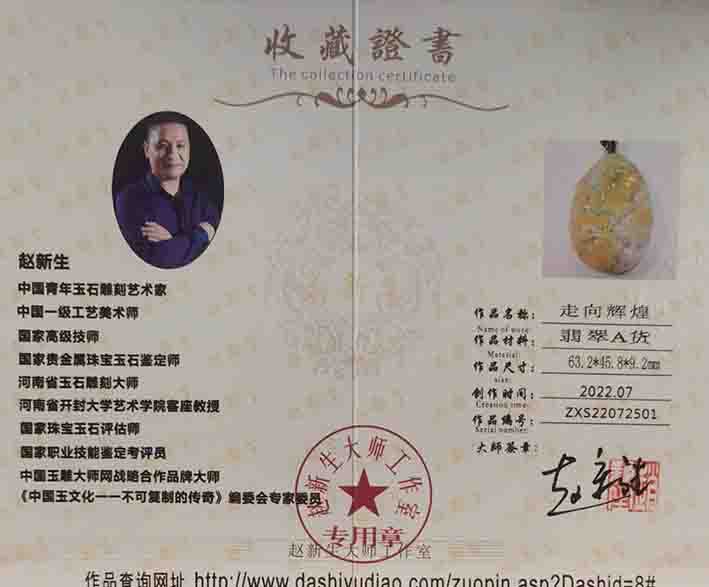 收藏證書
The collection certificate
赵新生
中国青年玉石雕刻艺术家
中国一级工艺美术师
国家高级技师
国家贵金属珠宝玉石鉴定师
河南省玉石雕刻大师
河南省开封大学艺术学院客座教授
国家珠宝玉石评估师
国家职业技能鉴定考评员
中国玉雕大师网战略合作品牌大师
《中国玉文化一一不可复制的传奇》编委会专家委员
作品名称: 走向辉煌
Name of work:
作品材料: 翡翠A货
Material:
作品尺寸: 63.2*45.8*9.2mm
size:
创作时间: 2022.07
Creation time:
作品编号: ZXS22072501
Serial number:
大师签章:
赵新生大师工作室
专用章
赵新生大师工作室
作品查询网址 http://www.dashiyudiao.com/zuopin.asp?Dashid=8#